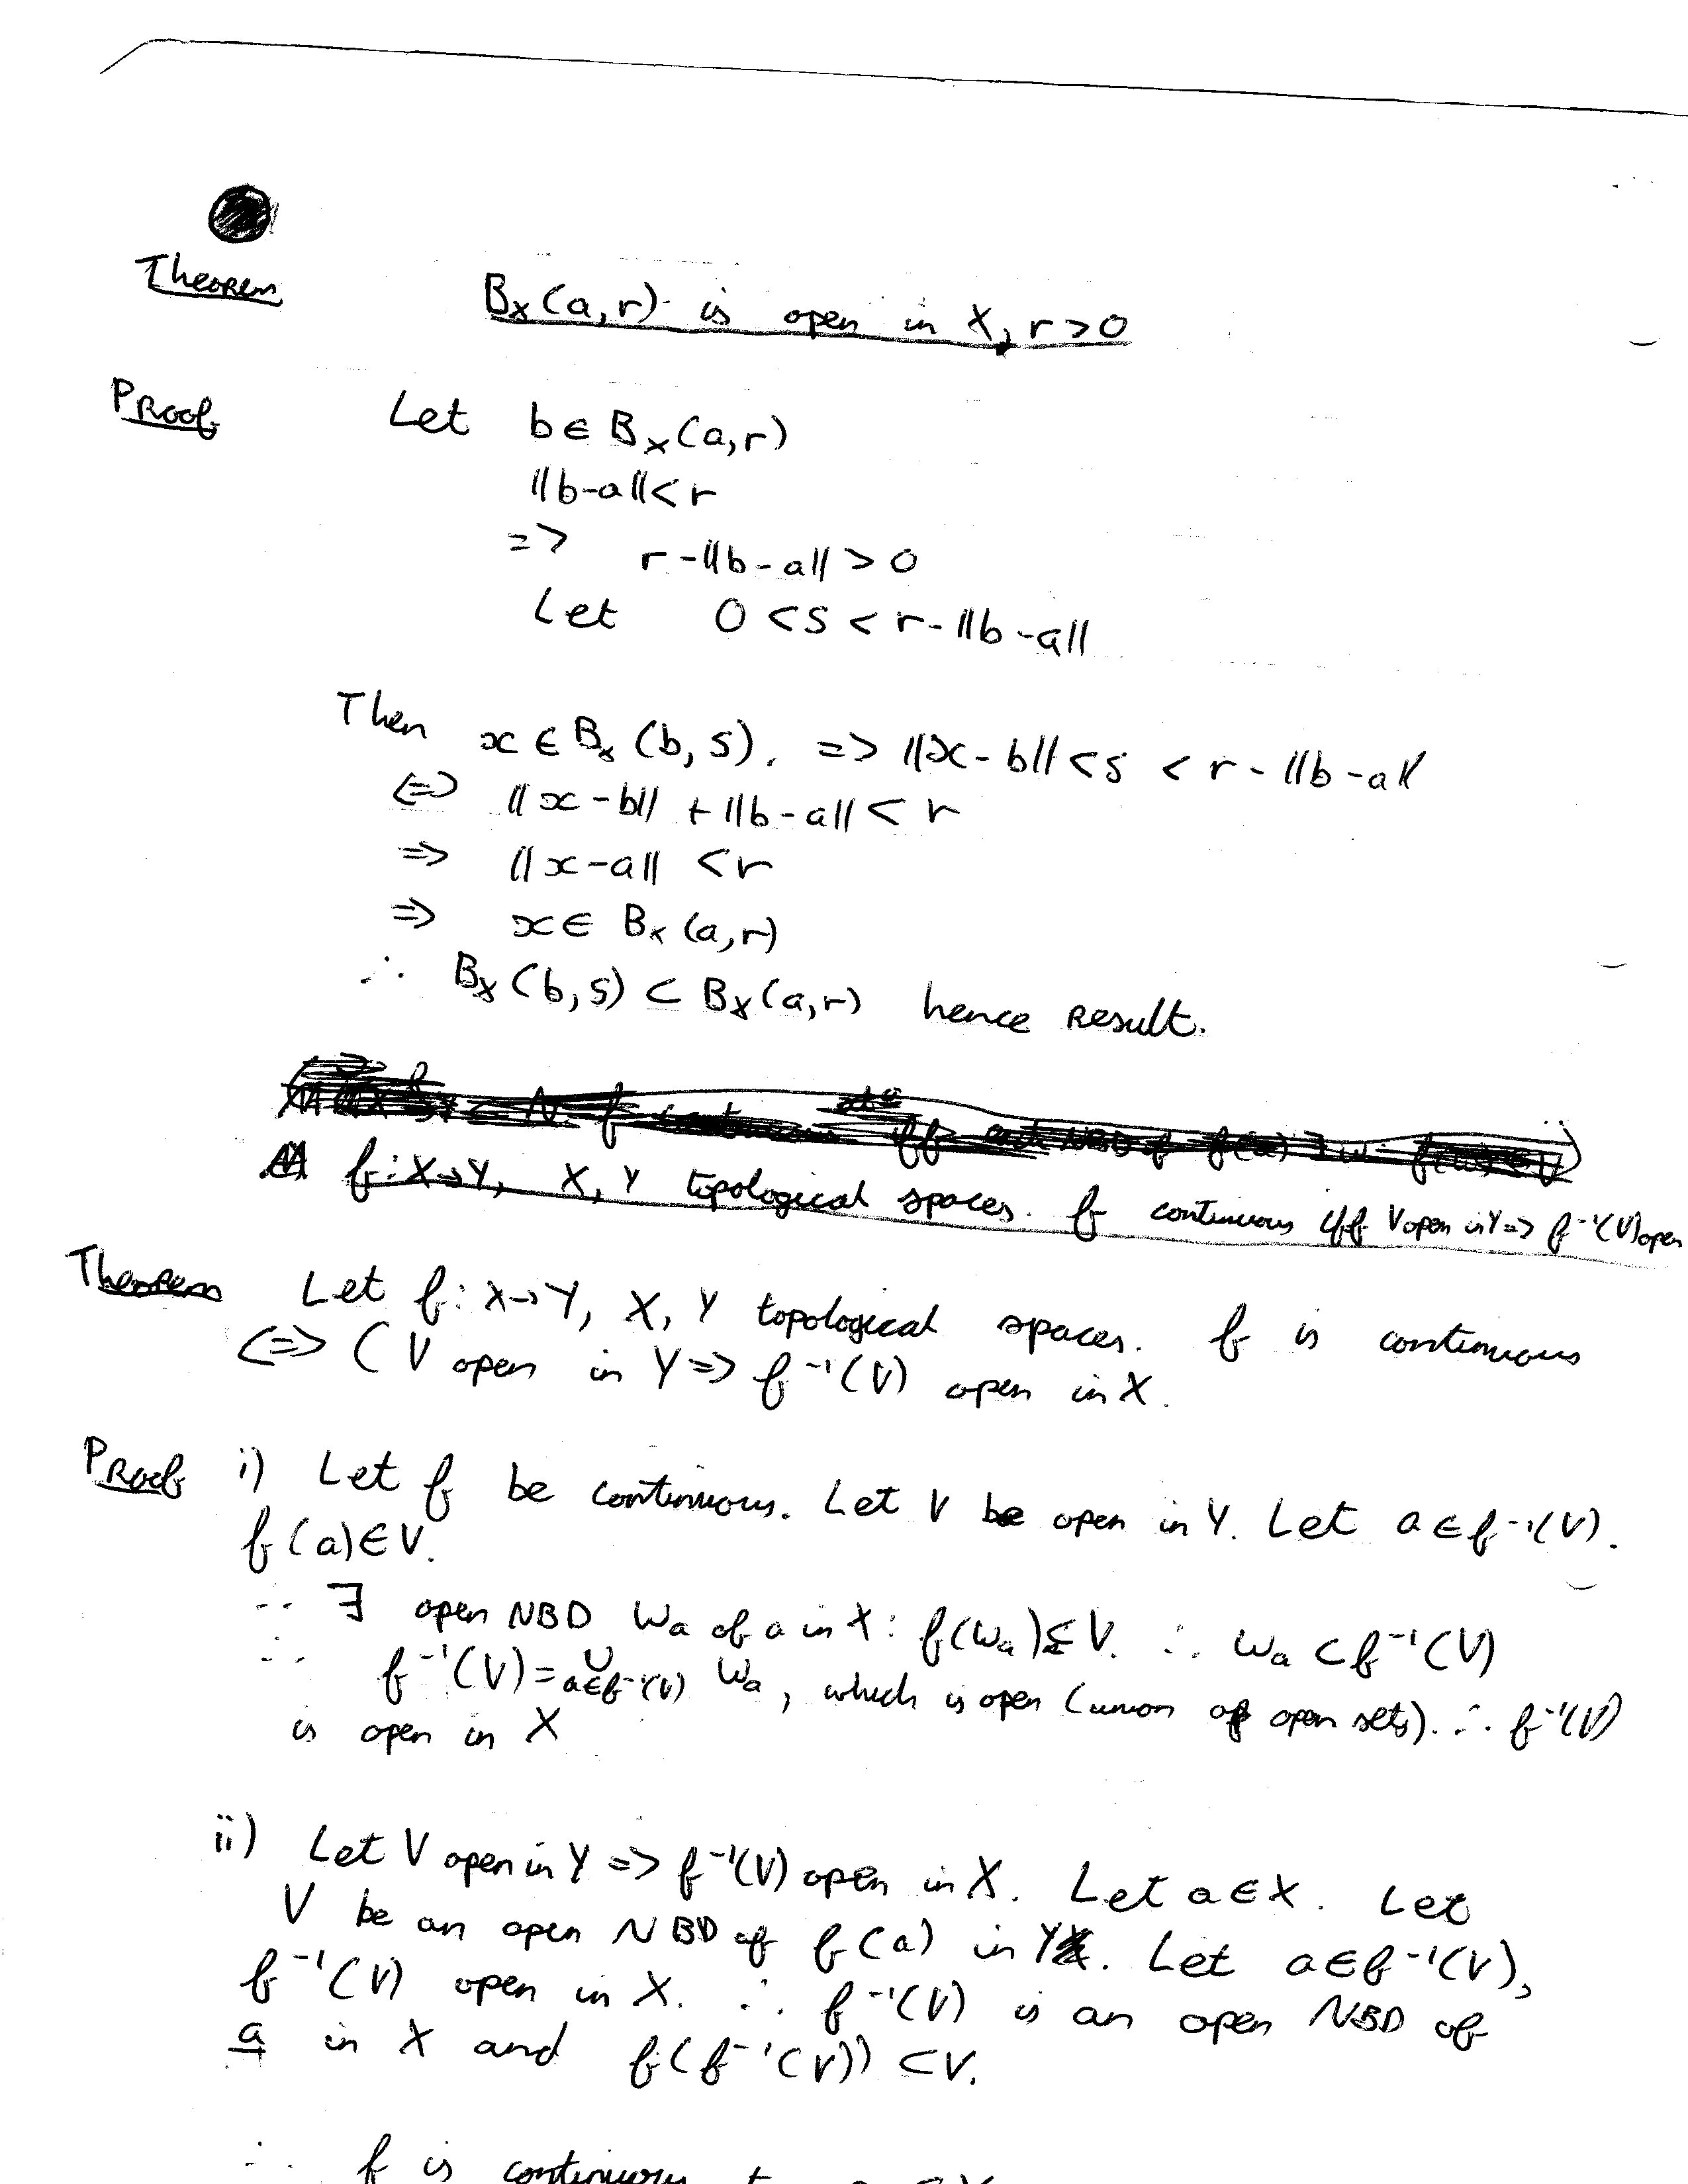 Theorem
B_X(a,r) is open in X, r>0
Proof Let b∈B_X(a,r)
||b-a||<r
=> r-||b-a||>0
Let 0<s<r-||b-a||
Then x∈B_X(b,s). => ||x-b||<s<r-||b-a||
<=> ||x-b||+||b-a||<r
=> ||x-a||<r
=> x∈B_X(a,r)
∴ B_X(b,s)⊂B_X(a,r) hence result.
f:X→Y, X,Y topological spaces. f continuous iff V open in Y=> f⁻¹(V) open
Theorem Let f:X→Y, X,Y topological spaces. f is continuous
<=> (V open in Y=> f⁻¹(V) open in X.
Proof i) Let f be continuous. Let V be open in Y. Let a∈f⁻¹(V).
f(a)∈V.
∴ ∃ open NBD W_a of a in X: f(W_a)⊆V. ∴ W_a⊂f⁻¹(V)
∴ f⁻¹(V)=∪_{a∈f⁻¹(V)} W_a, which is open (union of open sets). ∴ f⁻¹(V)
is open in X
ii) Let V open in Y => f⁻¹(V) open in X. Let a∈X. Let
V be an open NBD of f(a) in Y. Let a∈f⁻¹(V),
f⁻¹(V) open in X. ∴ f⁻¹(V) is an open NBD of
a in X and f(f⁻¹(V))⊂V.
∴ f is continuous